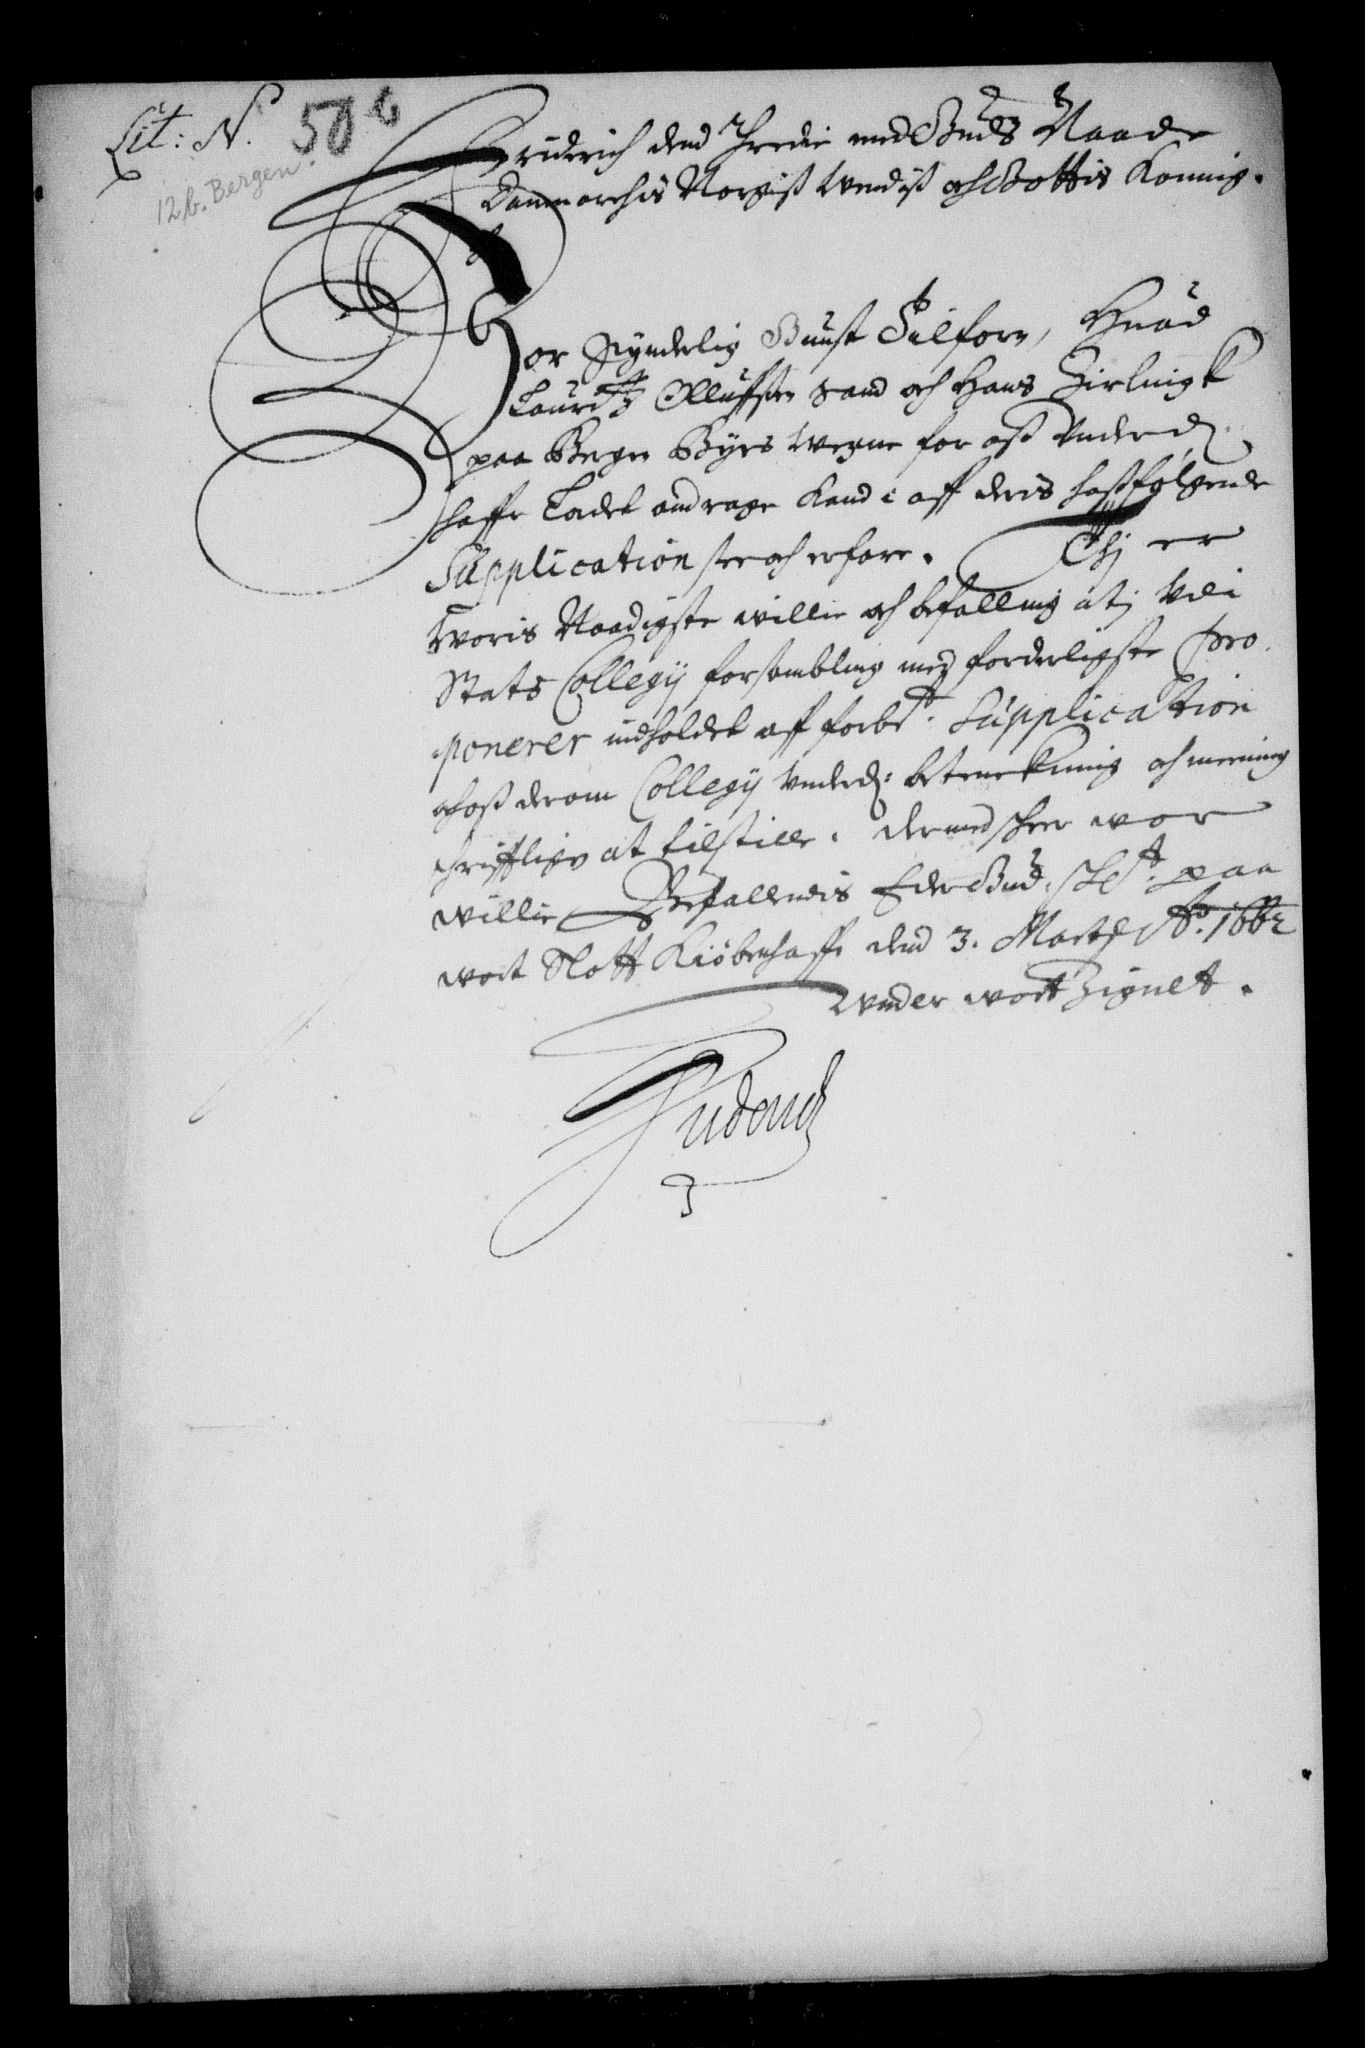 Lit: N. 50 b
12b. Bergen
Friderich dend Tredie med Guds Naade
Danmarchis Norgis Wendis och Gottis Konning.
Vor synderlig Gunst Tilforn, Hvad
Lauritz Olluffsen Tand och Hans
paa Bergen Byes Wegne for oss Underd:
haffr Ladet andrage Kand i aff deris hossfølgende
Supplication see och erfare. Thj er
Woris Naadigste willie och befalling at j Udi
Stats Collegij forsambling med forderligste pro-
ponerer indholdet aff forbt: Supplication
och oss derom Collegij Underd: betenckning och meening
schrifftligen at tilstille. dermed scheer wor
willie Befallendis Eder Gud. paa
wort Slott Kiöbenhaffn dend 3. Martij Ao. 1662
Under wort Zignet.
Friderich
3